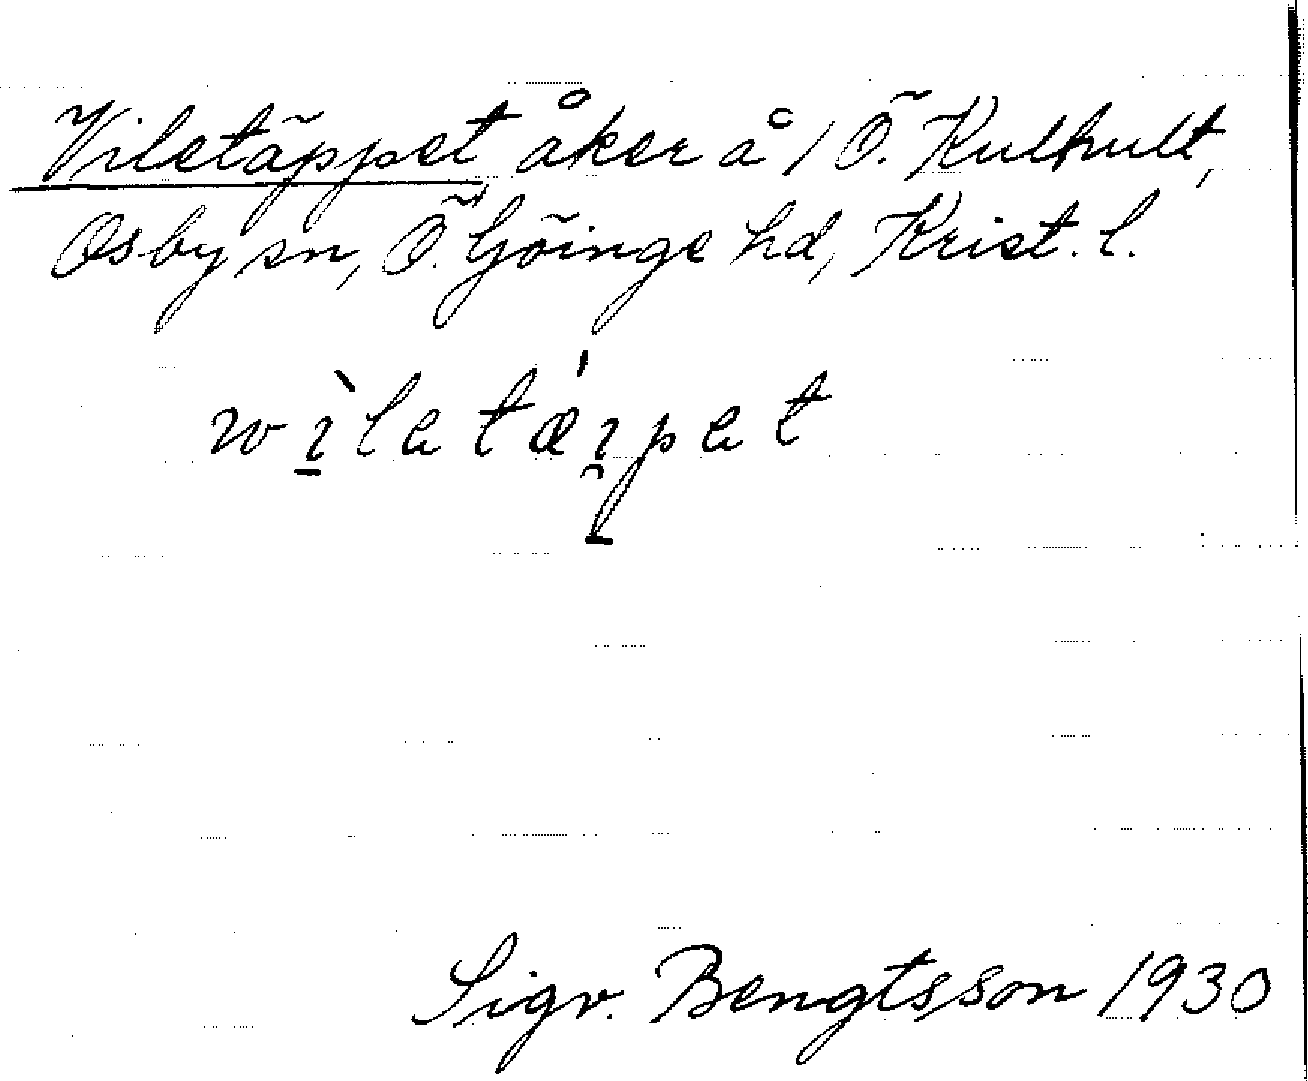 Viletäppet åker å 1 Ö. Kulhult,
Osby sn, Ö. Göinge hd, Krist. l.
wìletǽıpet
Sigv. Bengtsson 1930